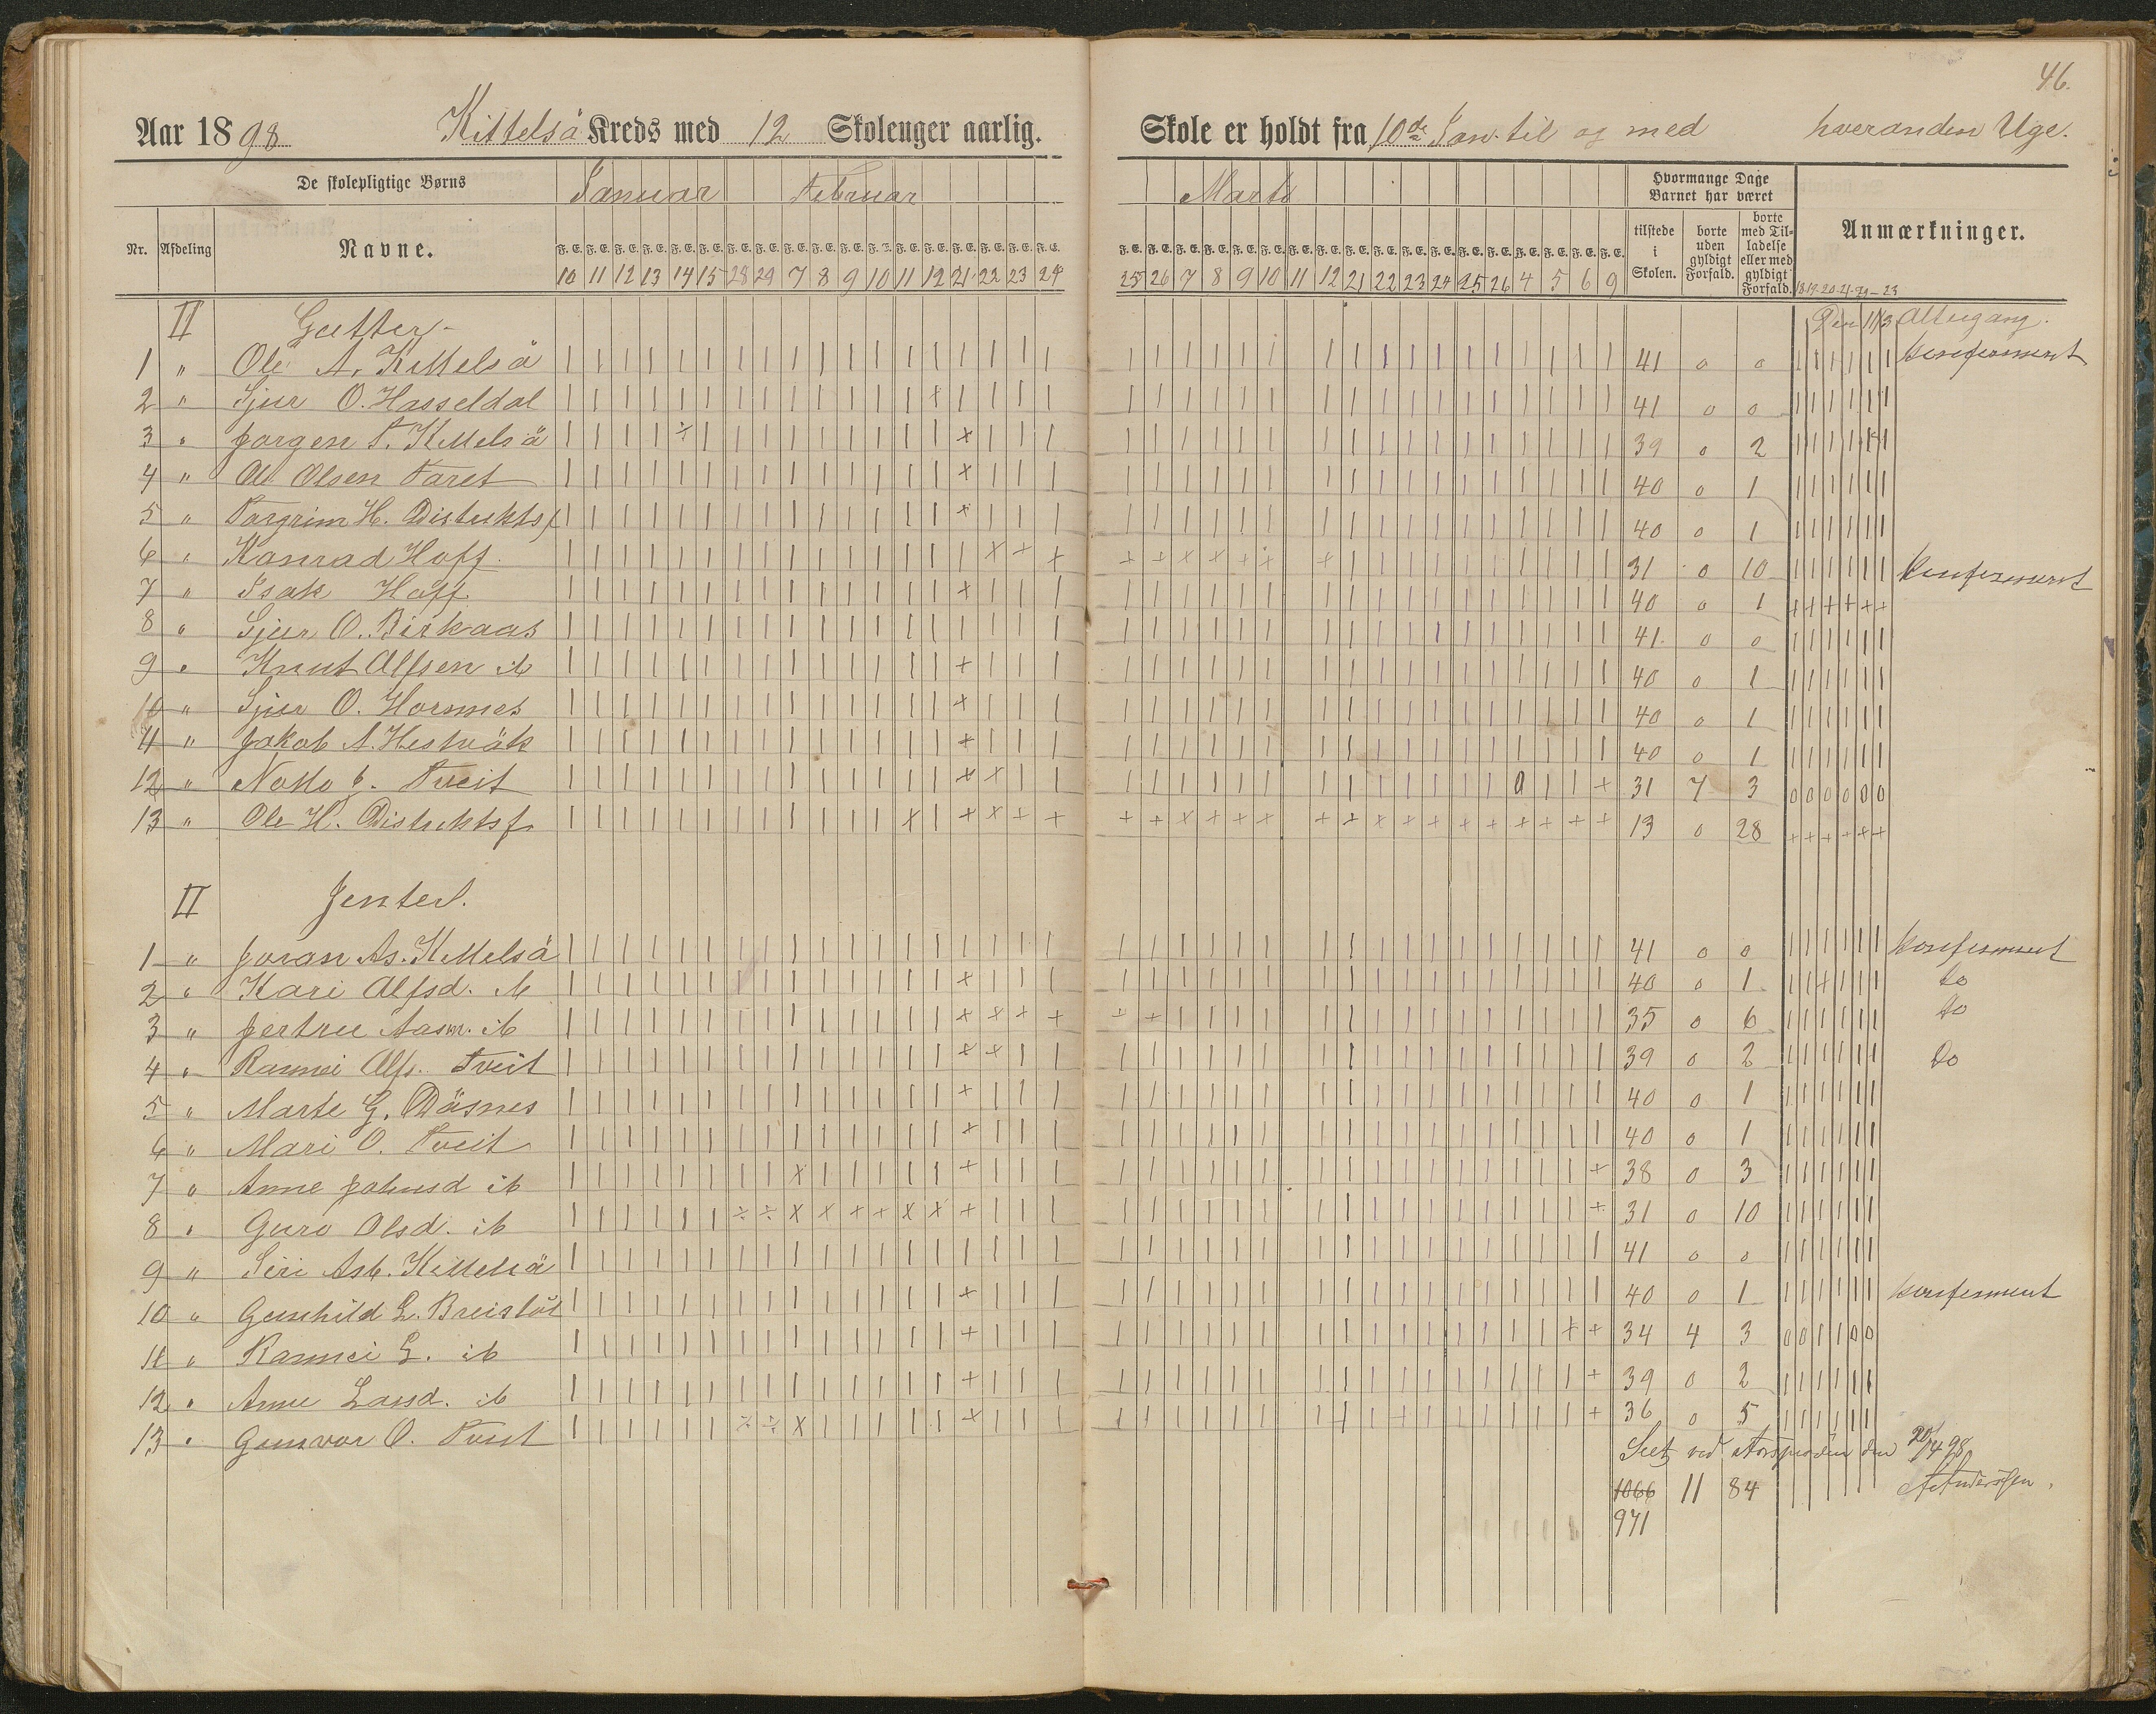 46.
Aar 1898 Kittelså Kreds med 12 Skoleuger aarlig. Skole er holdt fra 10de Jan. til og med hveranden Uge.
De skolepligtige Børns Januar Februar Marts Hvormange Dage Barnet har været
Nr. Afdeling Navne. tilstede i Skolen. borte uden gyldigt Forfald. borte med Tilladelse eller med gyldigt Forfald. Anmærkninger.
F. E. F. E. F. E. F. E. F. E. F. E. F. E. F. E. F. E. F. E. F. E. F. E. F. E. F. E. F. E. F. E. F. E. F. E. F. E. F. E. F. E. F. E. F. E. F. E. F. E. F. E. F. E. F. E. F. E. F. E. F. E. F. E. F. E. F. E. F. E. F. E.
10 11 12 13 14 15 28 29 7 8 9 10 11 12 21 22 23 24 25 26 7 8 9 10 11 12 21 22 23 24 25 26 4 5 6 9
II Gutter Den 11/3 Altergang.
1 " Ole A. Kittelså 41 0 0 konfirmert
2 " Sjur O. Hasseldal 41 0 0
3 " Jørgen T. Kittelså 39 0 2
4 " Ole Olsen Taret 40 0 1
5 " Torgrim H. Distriktsf 40 0 1
6 " Konrad Hoff. 31 0 10 konfirmert
7 " Isak Hoff 40 0 1
8 " Sjur O. Birkaas 41 0 0
9 " Knut Alfsen ib 40 0 1
10 " Sjur O. Hornnes 40 0 1
11 " Jakob A. Hestvåk 40 0 1
12 " Notto J. Tveit 31 7 3
13 " Ole H. Distriktsf. 13 0 28
II Jenter.
1 " Joran As. Kittelså 41 0 0 konfirmert
2 " Kari Alfsd. ib 40 0 1 do
3 " Jertru Aasm. ib 35 0 6 do
4 " Rannei Alfs. Tveit 39 0 2 Do
5 " Marte G. Dåsnes 40 0 1
6 " Mari O. Tveit 40 0 1
7 " Anne Johnsd ib 38 0 3
8 " Guro Olsd. ib 31 0 10
9 " Siri Asb. Kittelså 41 0 0
10 " Gunhild L. Breistöl 40 0 1 konfirmert
11 " Rannei L. ib 34 4 3
12 " Anne Larsd. ib 39 0 2
13 " Gunvor O. Tveit 36 0 5
Seet ved Aarsprøven den 20/4 98
1066 11 84 Anderssen.
971